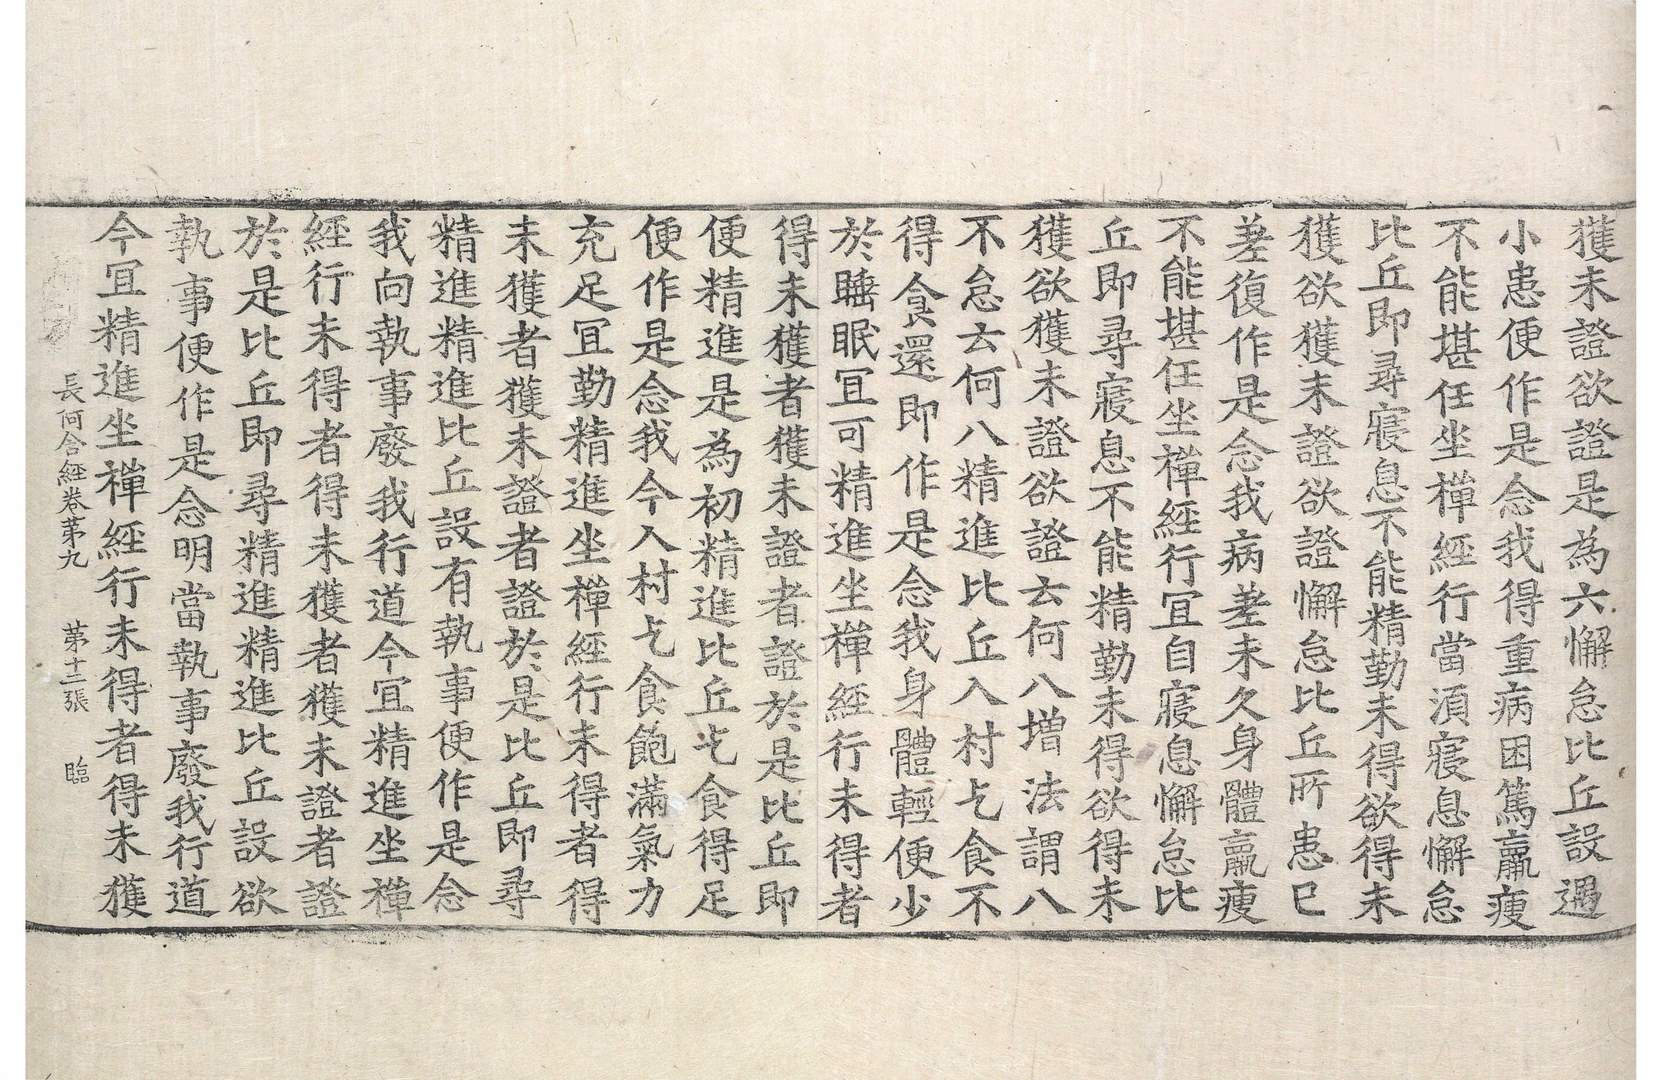 獲未證欲證是為六懈怠比丘設遇
小患便作是念我得重病困篤羸瘦
不能堪任坐禪經行當湏寢息懈怠
比丘即尋寢息不能精勤未得欲得未
獲欲獲未證欲證懈怠比丘所患已
差復作是念我病差未久身體羸瘦
不能堪任坐禪經行冝自寢息懈怠比
丘即尋寢息不能精勤未得欲得未
獲欲獲未證欲證云何八增法謂八
不怠云何八精進比丘入村乞食不
得食還即作是念我身體輕便少
於睡眠冝可精進坐禪經行未得者
得未獲者獲未證者證於是比丘即
便精進是為初精進比丘乞食得足
便作是念我今入村乞食飽滿氣力
充足冝勤精進坐禪經行未得者得
未獲者獲未證者證於是比丘即尋
精進精進比丘設有執事便作是念
我向執事廢我行道今冝精進坐禪
經行未得者得未獲者獲未證者證
於是比丘即尋精進精進比丘設欲
執事便作是念明當執事廢我行道
今冝精進坐禪經行未得者得未獲
長阿含經卷第九 第十二張 臨